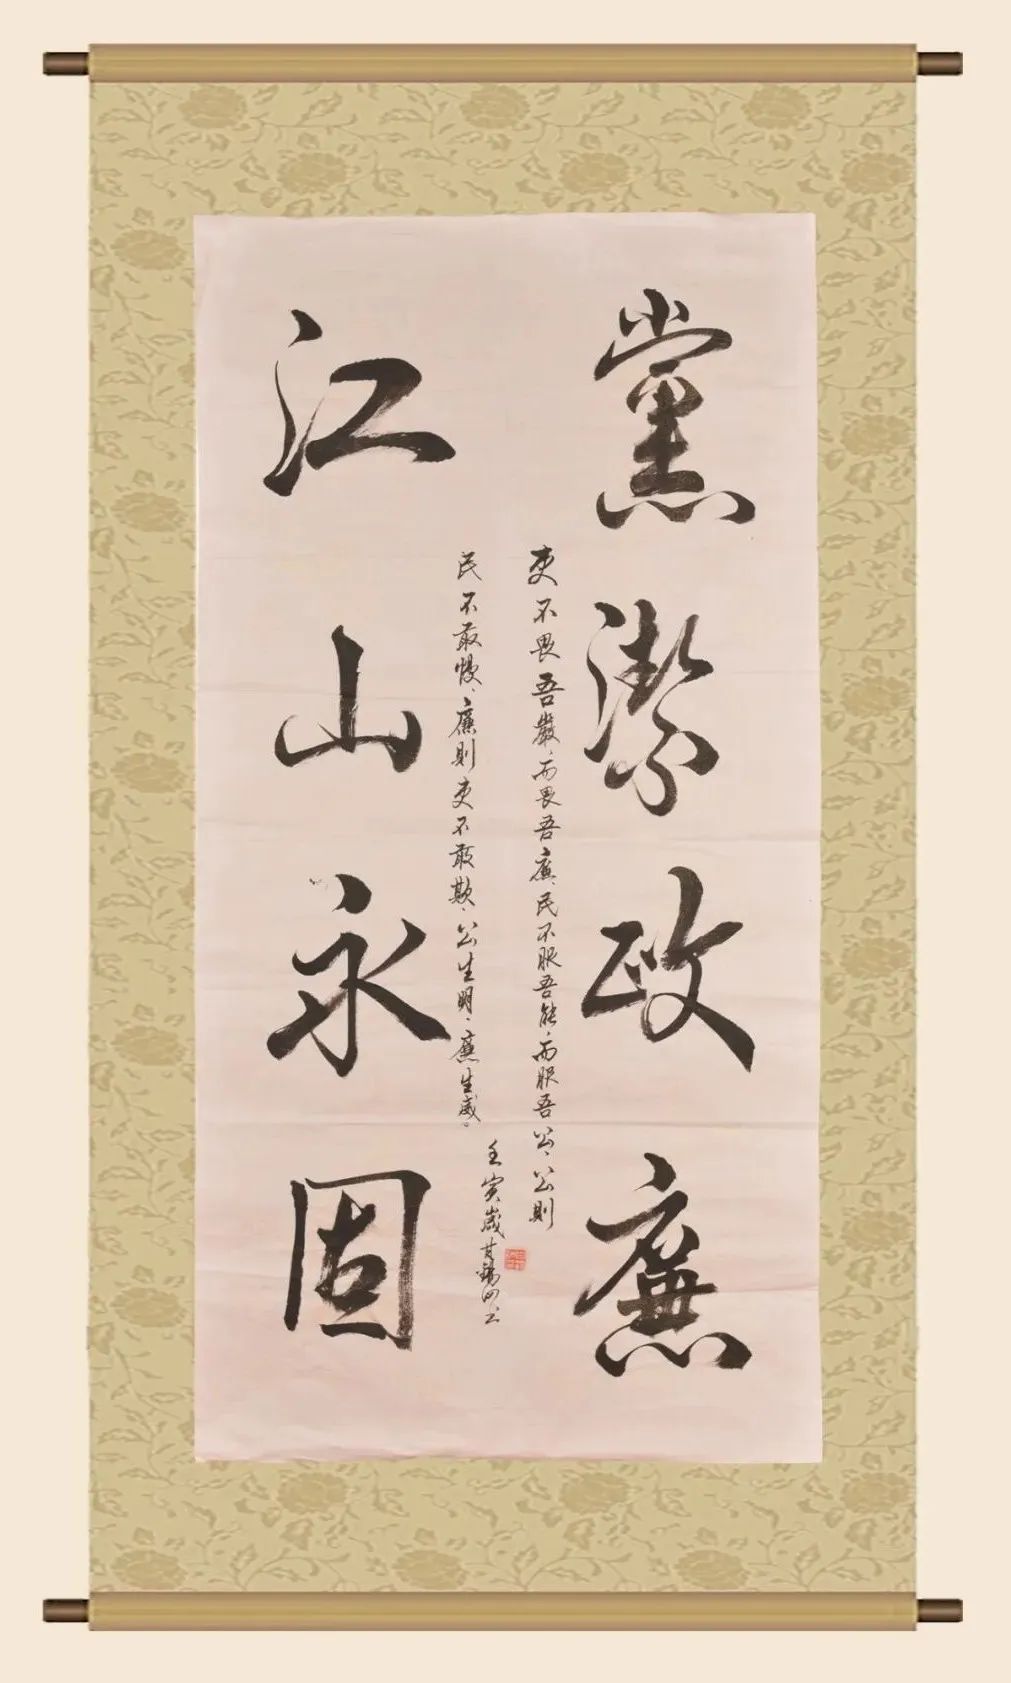 黨潔政廉
吏不畏吾嚴、而畏吾廉、民不服吾能、而服吾公、公則
民不敢慢、廉則吏不敢欺、公生明、廉生威。
壬寅歲
江山永固